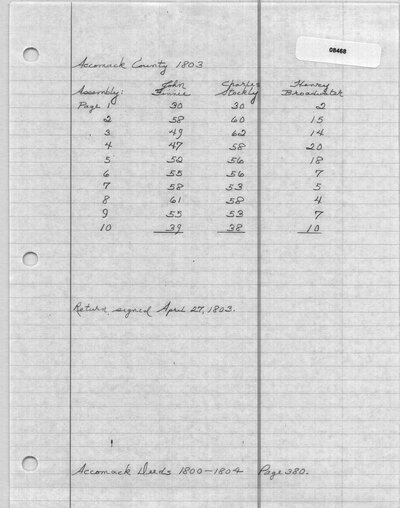 08468
Accomack County 1803
John Charles Henry
Assembly: Stockly Broadwater
Page 1 30 30 2
2 58 60 15
3 49 62 14
4 47 58 20
5 52 56 18
6 55 56 7
7 58 53 5
8 61 58 4
9 55 53 7
10 39 38 10
Return signed April 27, 1803.
Accomack Deeds 1800-1804 Page 380.